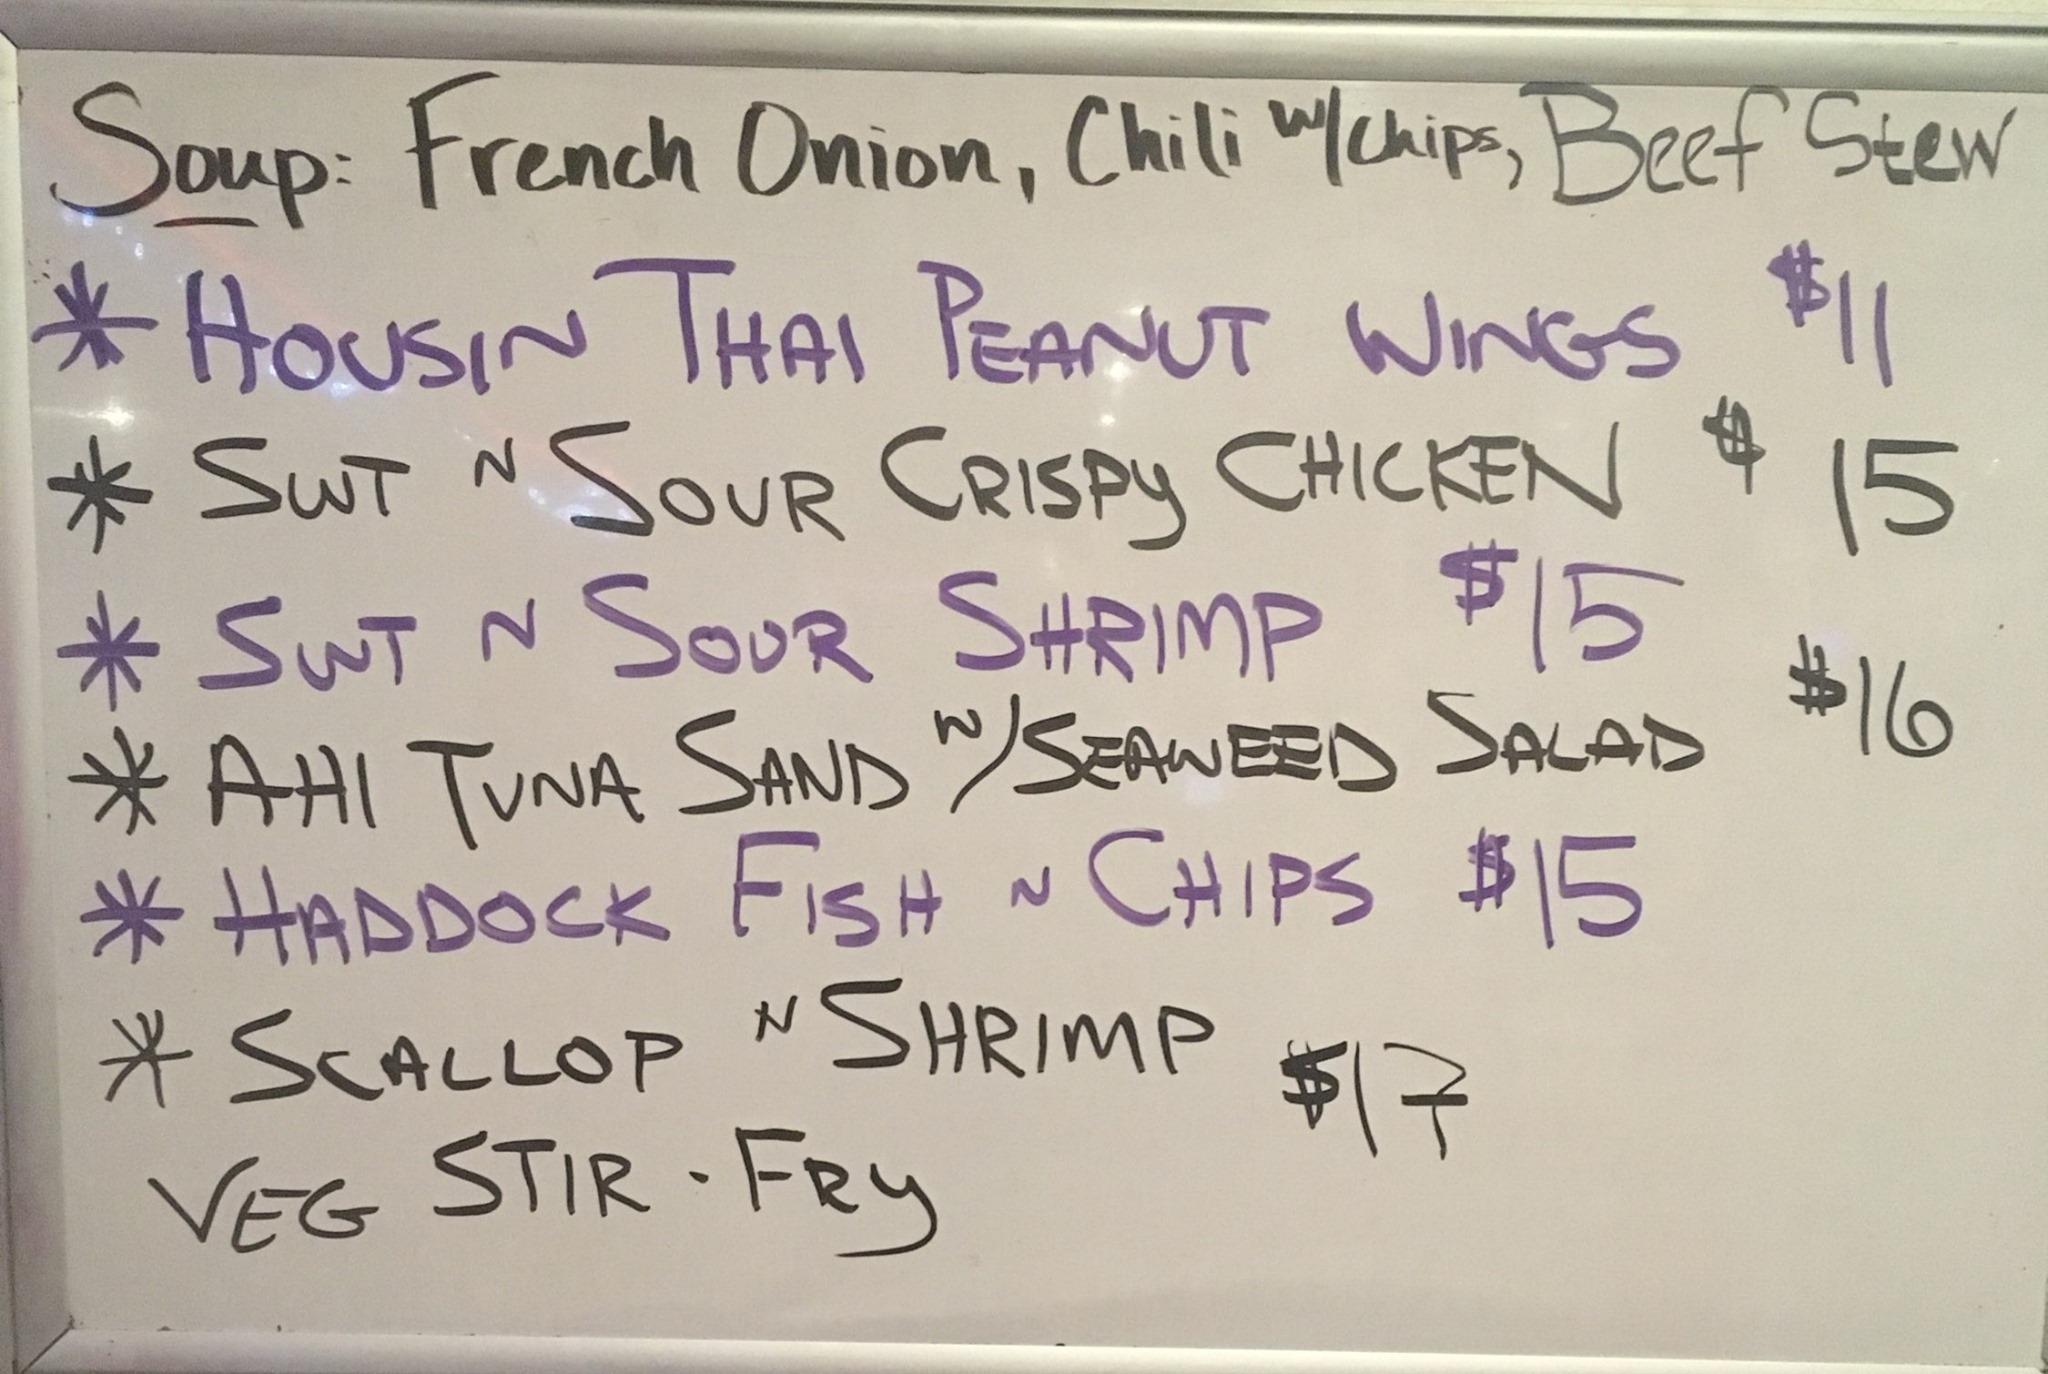 Soup: French Onion, Chili w/chips, Beef Stew
* HOUSIN THAI PEANUT WINGS $11
* SWT N SOUR CRISPY CHICKEN $15
* SWT N SOUR SHRIMP $15
* AHI TUNA SAND W/SEAWEED SALAD $16
* HADDOCK FISH N CHIPS $15
* SCALLOP N SHRIMP $17
VEG STIR-FRY